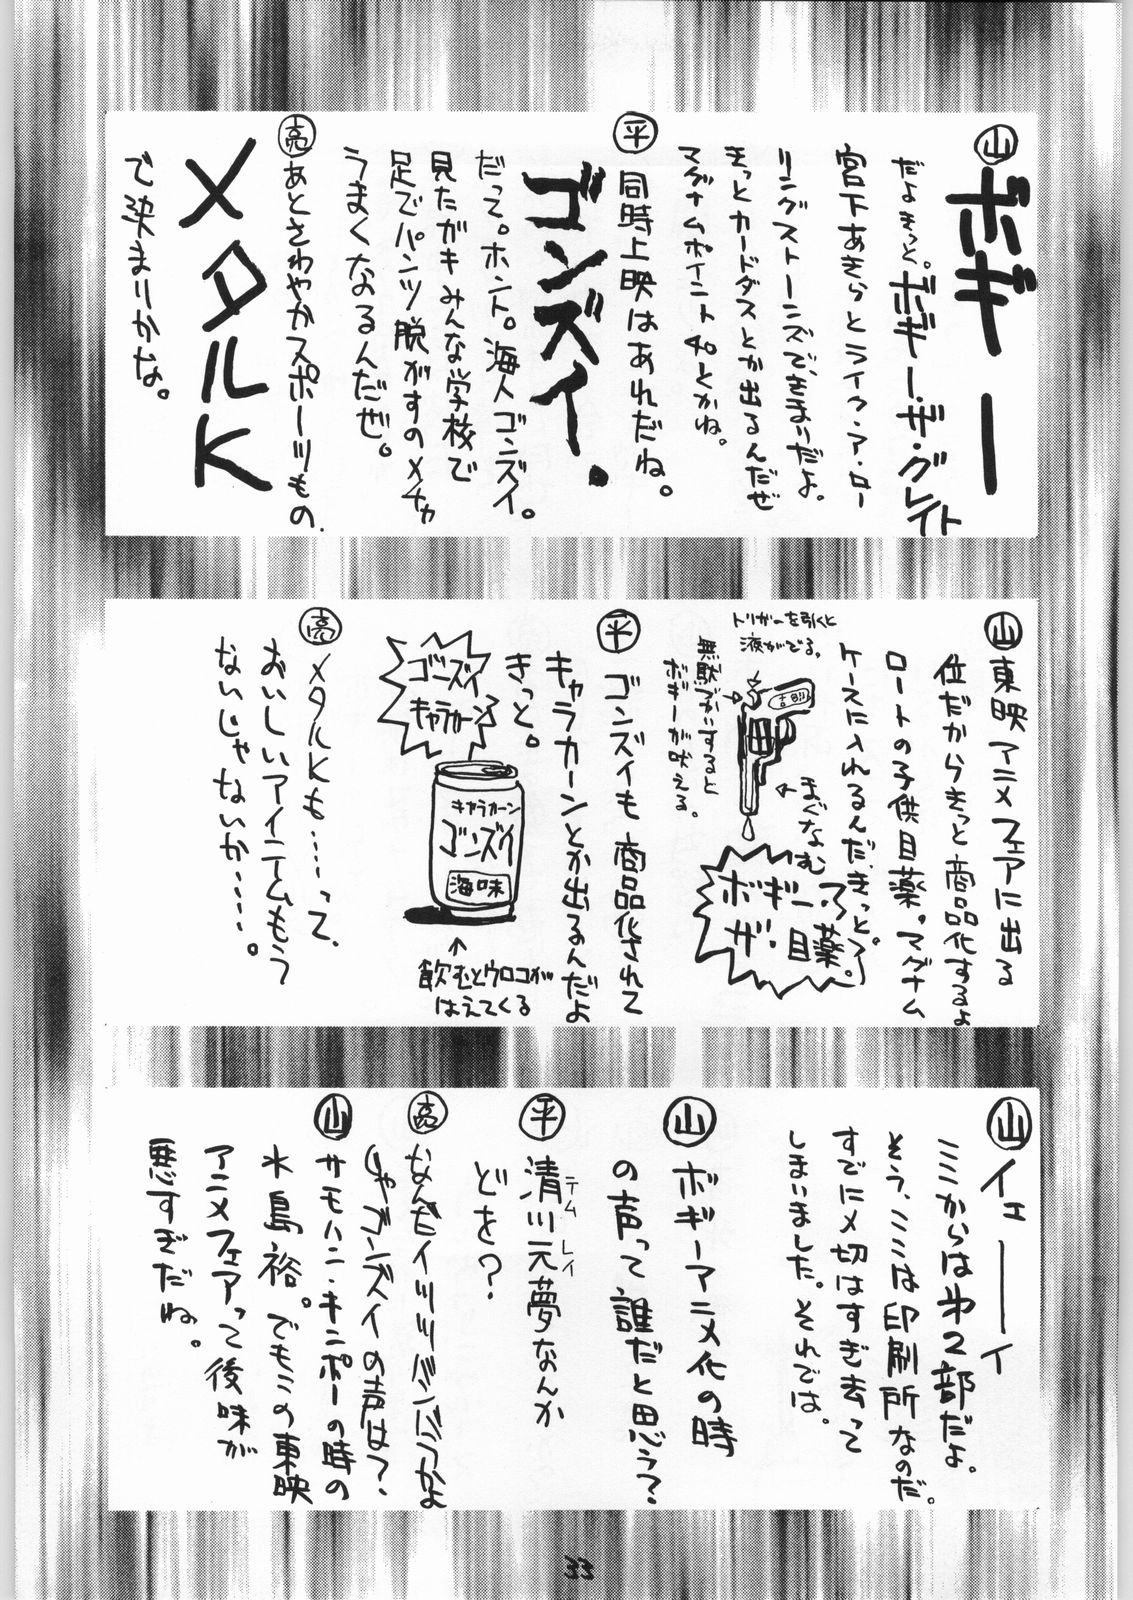 山 ボギー
だよきっと。ボギー・ザ・グレイト
宮下あきらとライク・ア・ロー
リングストーンズで、きまいだよ。
きっとカードダスとか出るんだぜ
マグナムポイント40とかね。
平 同時上映はあれだね。
ゴンズイ.
だって。ホント。海人ゴンズイ。
見たがキみんな学校で
足でパンツ脱がすのメチャ
うまくなるんだぜ。
亮 あとさわやかスポーツもの.
メタルK
で決まりかな。
山 東映アニメフェアに出る
位だからきっと商品化するよ
ロートの子供目薬。マグナム
ケースに入れるんだきっと。
トリガーを引くと
液がでる。
無駄づかいすると
ボギーが吠える。
まぐなむ
ボギー
ザ・目薬。
平 ゴンズイも商品化されて
キャラカーンとか出るんだよ
きっと。
ゴンズイ
キャラカーン
キャラカーン
ゴンズイ
海味
飲むとウロコが
はえてくる
亮 メタルKも……って、
おいしいアイテムもう
ないじゃないか……。
山 イェーーイ
ミミからは第2部だよ。
そう、ミミは印刷所なのだ。
すでに〆切はすぎ去って
しまいました。それでは。
山 ボギーアニメ化の時
の声って誰だと思う?
平 清川元夢なんか
テム レイ
どを?
亮 なんでイツツバンバツかよ
じゃゴンズイの声は?
山 サモハン・キンポーの時の
水島裕。でもこの東映
アニメフェアって後味が
悪すぎだね。
33